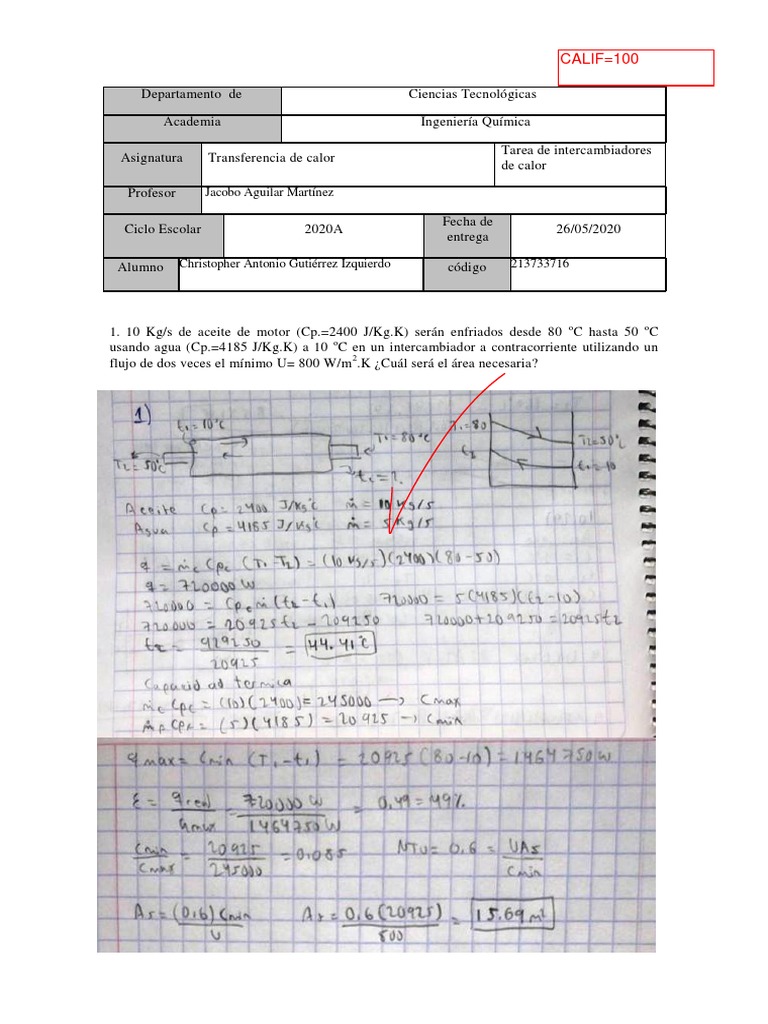 CALIF=100
Departamento de Ciencias Tecnológicas
Academia Ingeniería Química
Asignatura Transferencia de calor Tarea de intercambiadores de calor
Profesor Jacobo Aguilar Martínez
Ciclo Escolar 2020A Fecha de entrega 26/05/2020
Alumno Christopher Antonio Gutiérrez Izquierdo código 213733716
1. 10 Kg/s de aceite de motor (Cp.=2400 J/Kg.K) serán enfriados desde 80 ºC hasta 50 ºC
usando agua (Cp.=4185 J/Kg.K) a 10 ºC en un intercambiador a contracorriente utilizando un
flujo de dos veces el mínimo U= 800 W/m².K ¿Cuál será el área necesaria?
1)
t₁=10°C
T₁=80°C
T₂=50°C
t₂=?
T₁=80
T₂=50°C
t₂
t₁=10
Aceite Cp= 2400 J/Kg°C ṁ= 10 Kg/s
Agua Cp=4185 J/Kg°C ṁ= 5 Kg/s
q = ṁc Cpc (T₁-T₂)=(10 Kg/s)(2400)(80-50)
q= 720000 W
720000 = Cpcṁ(t₂-t₁) 720000=5(4185)(t₂-10)
720000=20925t₂-209250 720000+209250=20925t₂
t₂= 929250/20925 = 44.41°C
Capacidad termica
ṁc Cpc=(10)(2400)=245000 → Cmax
ṁF CpF=(5)(4185)=20925 → Cmin
qmax= Cmin (T₁-t₁) = 20925(80-10)=1464750W
ε= q real/qmax = 720000W/1464750W = 0.49=49%
Cmin/Cmax = 20925/245000 =0.085 NTU= 0.6 = UAs/Cmin
As=(0.6)Cmin/U As= 0.6(20925)/800 = 15.69m²